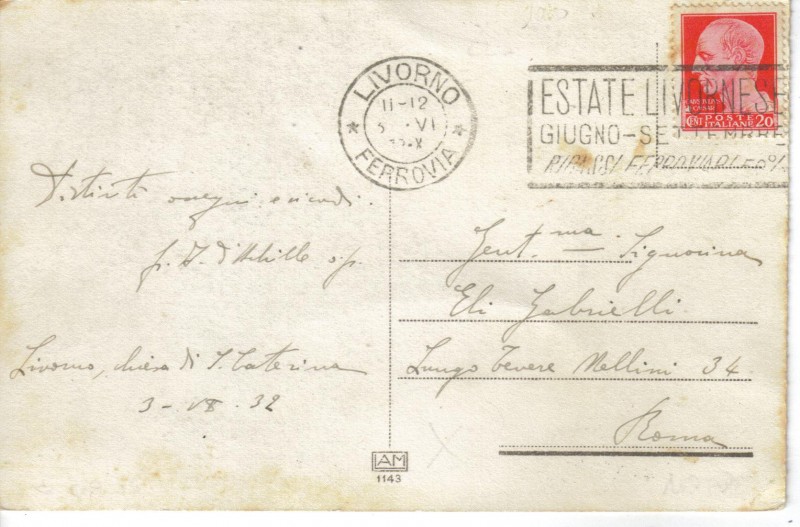 LIVORNO
11-12
VI
FERROVIA
ESTATE LIVORNESE
GIUGNO-SETTEMBRE
RIBASSI FERROVIARI 50%
CENT POSTE 20
ITALIANE
Distinti ossequi e ricordi.
Livorno, chiesa di S. Caterina
32
Gent.ma Signorina
Eli Gabrielli
Lungo Tevere Mellini 34
Roma
IAM
1143